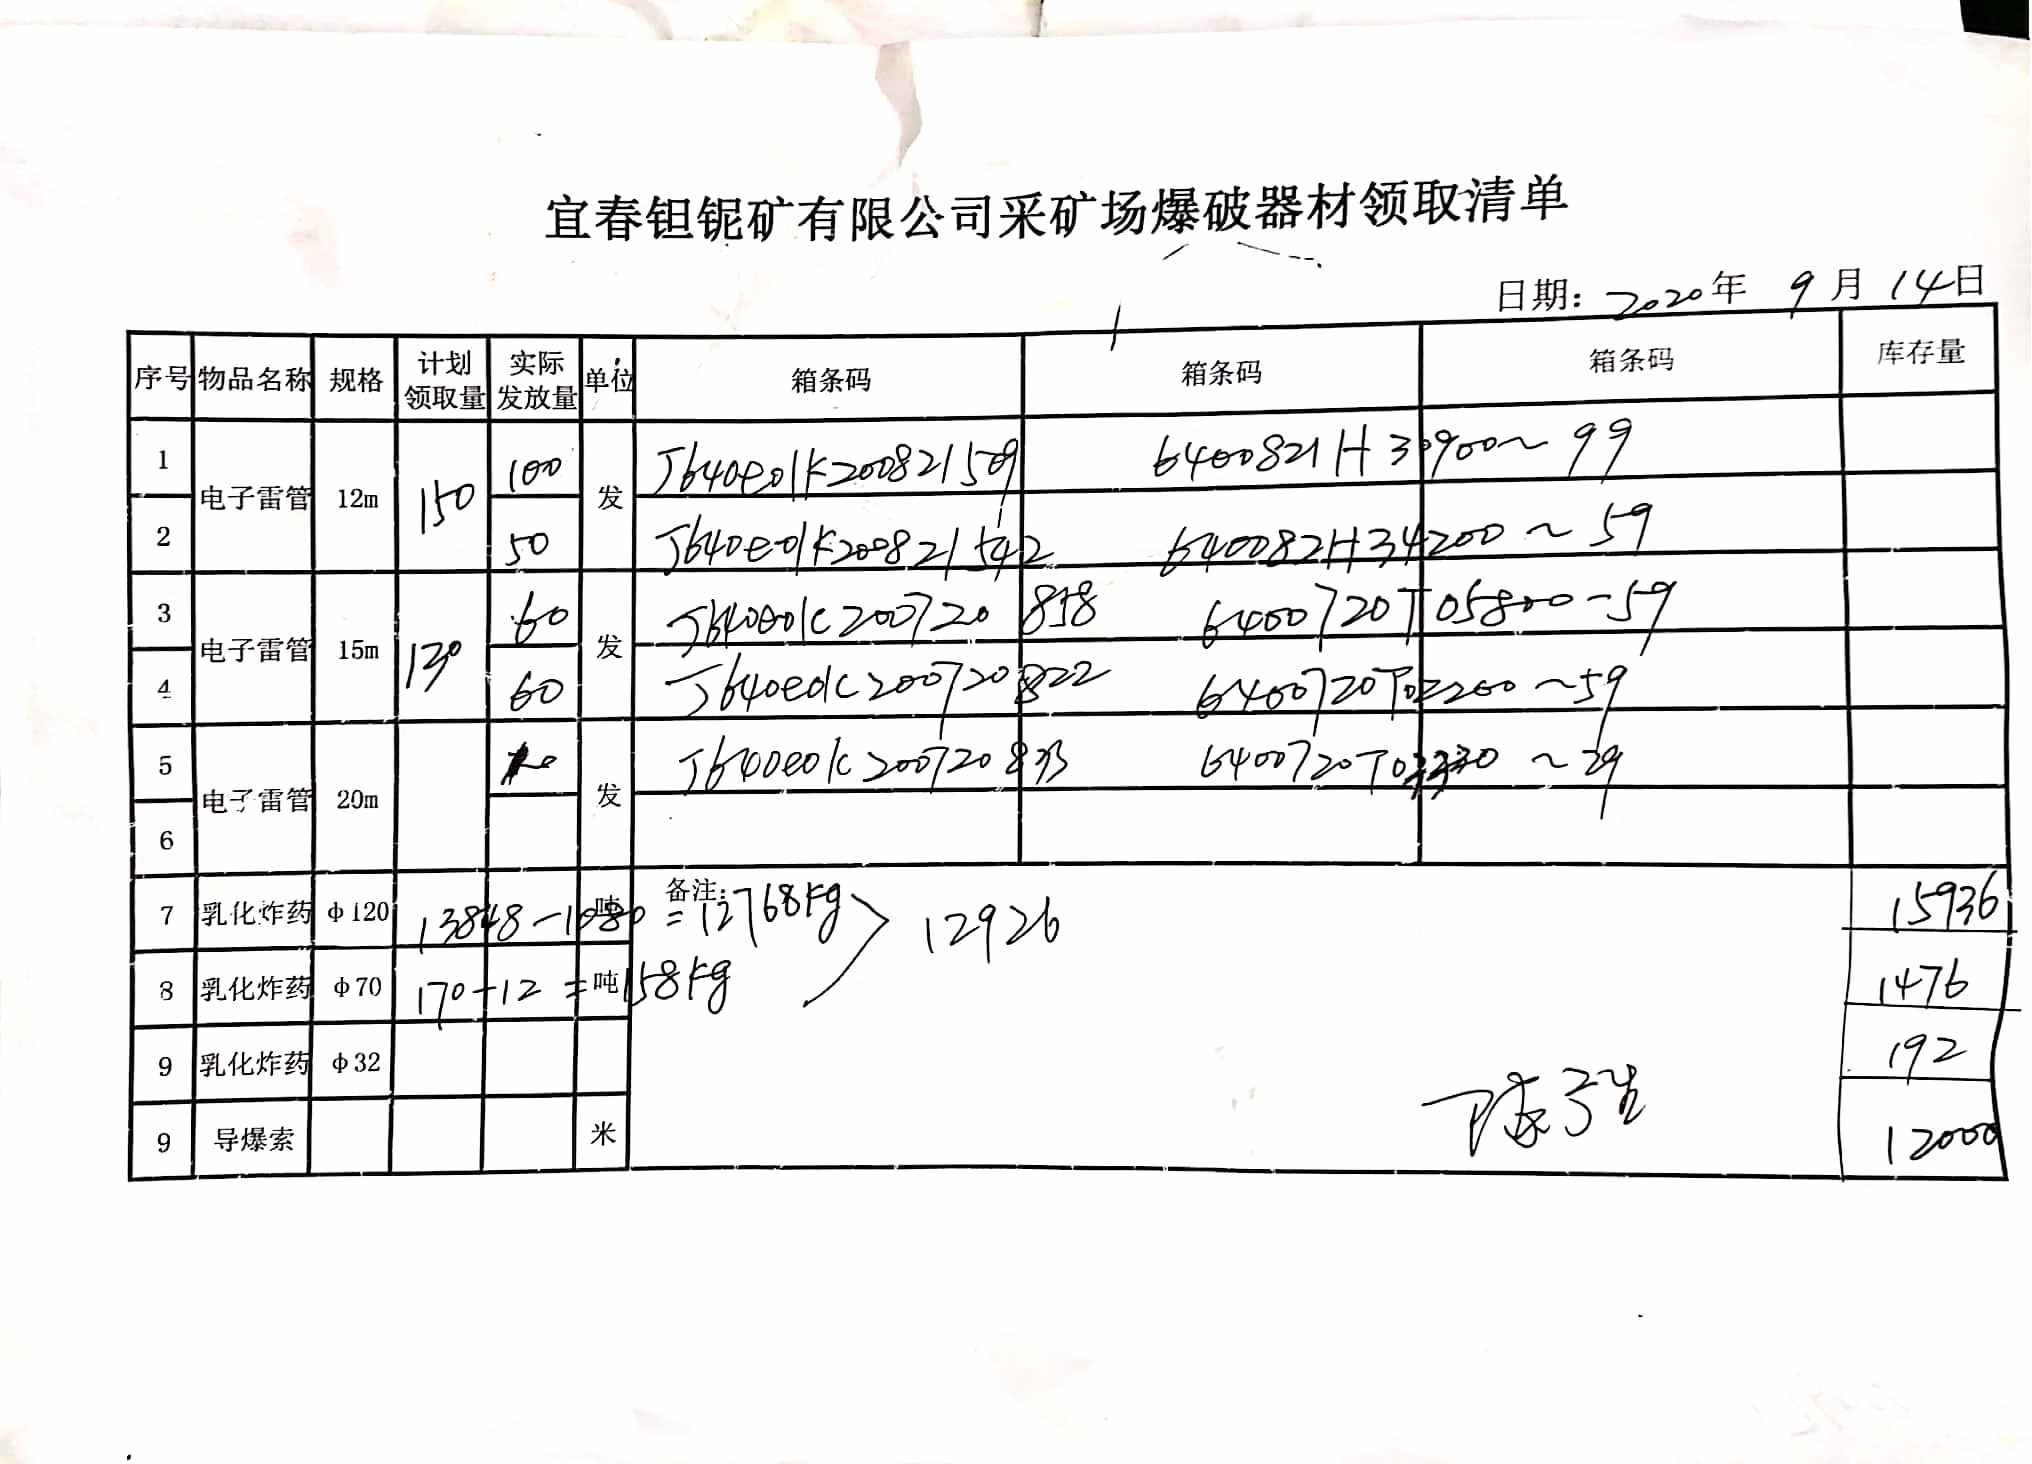 宜春钽铌矿有限公司采矿场爆破器材领取清单
日期: 2020年 9月 14日
序号 物品名称 规格 计划领取量 实际发放量 单位 箱条码 箱条码 箱条码 库存量
1 电子雷管 12m 150 100 发 J640e01K200821509 6400821H30900~99
2 50 J640e01K200821542 640082H34200~59
3 电子雷管 15m 130 60 发 J640e01C200720858 6400720T05800-59
4 60 J640e01C200720822 6400720T02200~59
5 电子雷管 20m 发 J640e01C200720833 6400720T03330~39
6
7 乳化炸药 φ120 13848-1080=12768kg 吨 备注: 12926 15936
8 乳化炸药 φ70 170-12=158kg 吨 1476
9 乳化炸药 φ32 192
9 导爆索 米 12000